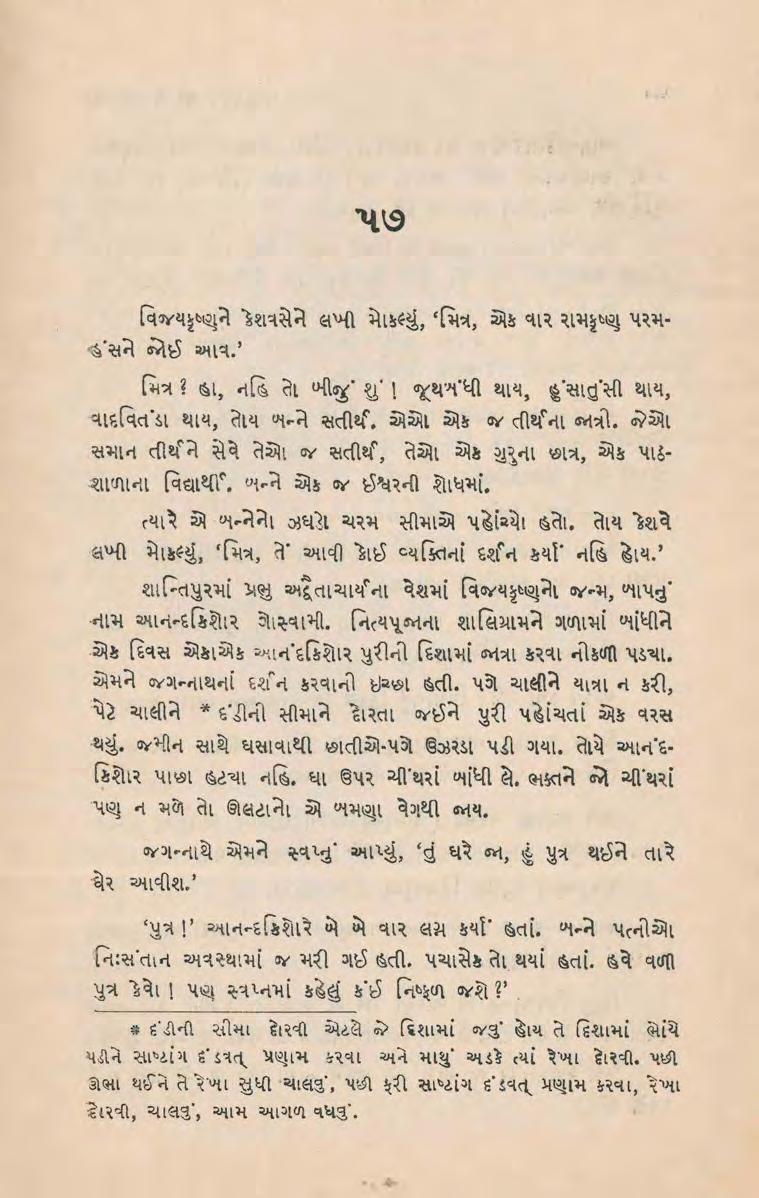 ૫૭
વિજયકૃષ્ણને કેશવસેને લખી મોકલ્યું, ‘મિત્ર, એક વાર રામકૃષ્ણ પરમ-
હંસને જોઈ આવ.’
મિત્ર ? હા, નહિ તો બીજું શું ! જૂથબંધી થાય, હુંસાતુંસી થાય,
વાદવિતંડા થાય, તોય બન્ને સતીર્થ. એઓ એક જ તીર્થના જાત્રી. જેઓ
સમાન તીર્થને સેવે તેઓ જ સતીર્થ, તેઓ એક ગુરુના છાત્ર, એક પાઠ-
શાળાના વિદ્યાર્થી. બન્ને એક જ ઈશ્વરની શોધમાં.
ત્યારે એ બન્નેનો ઝઘડો ચરમ સીમાએ પહોંચ્યો હતો. તોય કેશવે
લખી મોકલ્યું, ‘મિત્ર, તેં આવી કોઈ વ્યક્તિનાં દર્શન કર્યાં નહિ હોય.’
શાન્તિપુરમાં પ્રભુ અદ્વૈતાચાર્યના વેશમાં વિજયકૃષ્ણનો જન્મ, બાપનું
નામ આનન્દકિશોર ગોસ્વામી. નિત્યપૂજાના શાલિગ્રામને ગળામાં બાંધીને
એક દિવસ એકાએક આનંદકિશોર પુરીની દિશામાં જાત્રા કરવા નીકળી પડ્યા.
એમને જગન્નાથનાં દર્શન કરવાની ઇચ્છા હતી. પગે ચાલીને યાત્રા ન કરી,
પેટે ચાલીને * દંડીની સીમાને દોરતા જઈને પુરી પહોંચતાં એક વરસ
થયું. જમીન સાથે ઘસાવાથી છાતીએ-પગે ઉઝરડા પડી ગયા. તોયે આનંદ-
કિશોર પાછા હટ્યા નહિ. ઘા ઉપર ચીંથરાં બાંધી લે. ભક્તને જો ચીંથરાં
પણ ન મળે તો ઊલટાનો એ બમણા વેગથી જાય.
જગન્નાથે એમને સ્વપ્નું આપ્યું, ‘તું ઘરે જા, હું પુત્ર થઈને તારે
ઘેર આવીશ.’
‘પુત્ર !’ આનન્દકિશોરે બે બે વાર લગ્ન કર્યાં હતાં. બન્ને પત્નીઓ
નિઃસંતાન અવસ્થામાં જ મરી ગઈ હતી. પચાસેક તો થયાં હતાં. હવે વળી
પુત્ર કેવો ! પણ સ્વપ્નમાં કહેલું કંઈ નિષ્ફળ જશે ?’
* દંડીની સીમા દોરવી એટલે જે દિશામાં જવું હોય તે દિશામાં ભોંયે
પડીને સાષ્ટાંગ દંડવત્ પ્રણામ કરવા અને માથું અડકે ત્યાં રેખા દોરવી. પછી
ઊભા થઈને તે રેખા સુધી ચાલવું, પછી ફરી સાષ્ટાંગ દંડવત્ પ્રણામ કરવા, રેખા
દોરવી, ચાલવું, આમ આગળ વધવું.